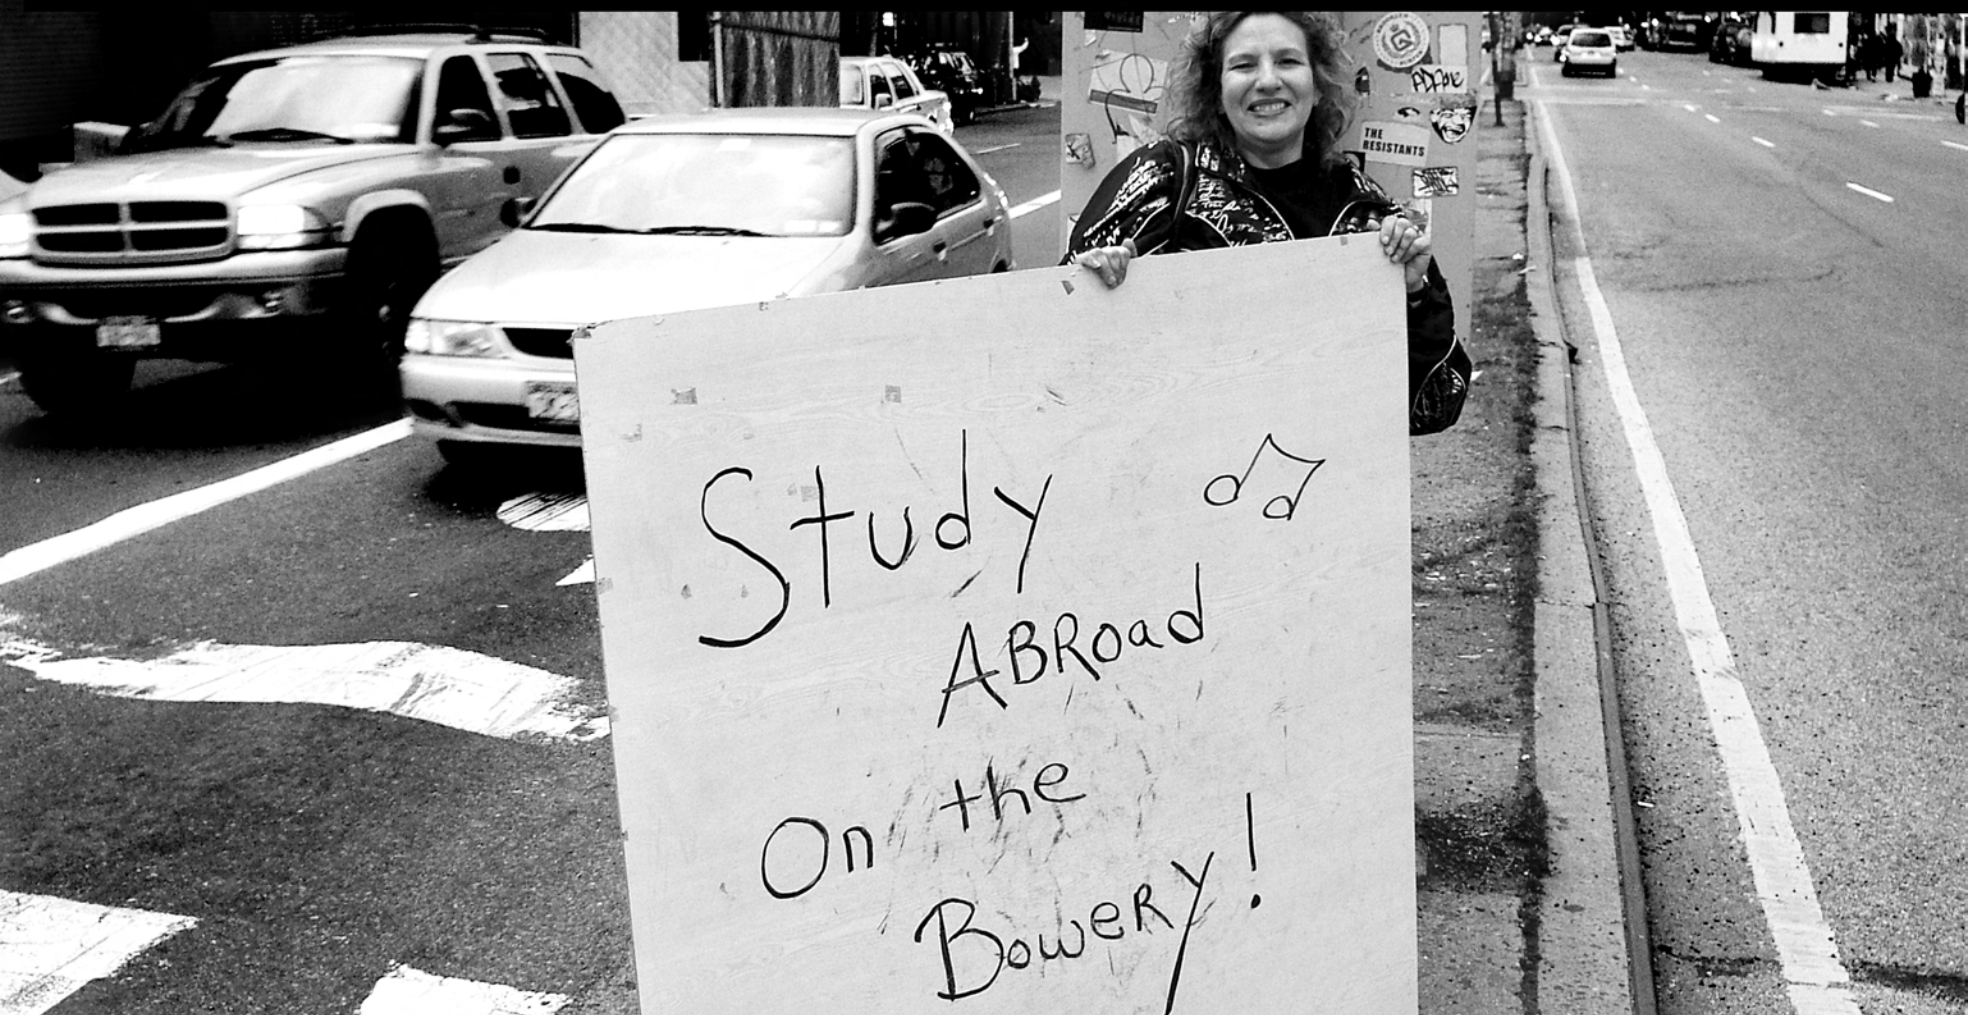 THE
RESISTANTS
Study
ABRoad
On the
BoweRy!